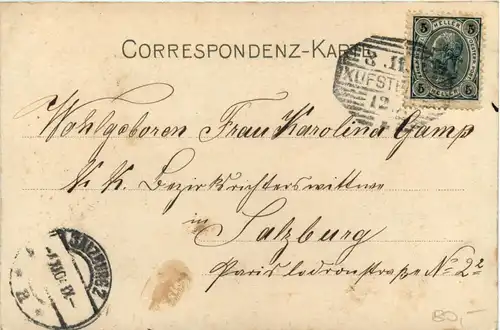 CORRESPONDENZ-KARTE
5 HELLER 5
5 HELLER 5
KUFSTEIN
12
Wohlgeboren Frau Karolina Gamp
K. K. Bezirksrichterswittwe
in
Salzburg
Paris Lodronstraße No 2
SALZBURG 2
80,-